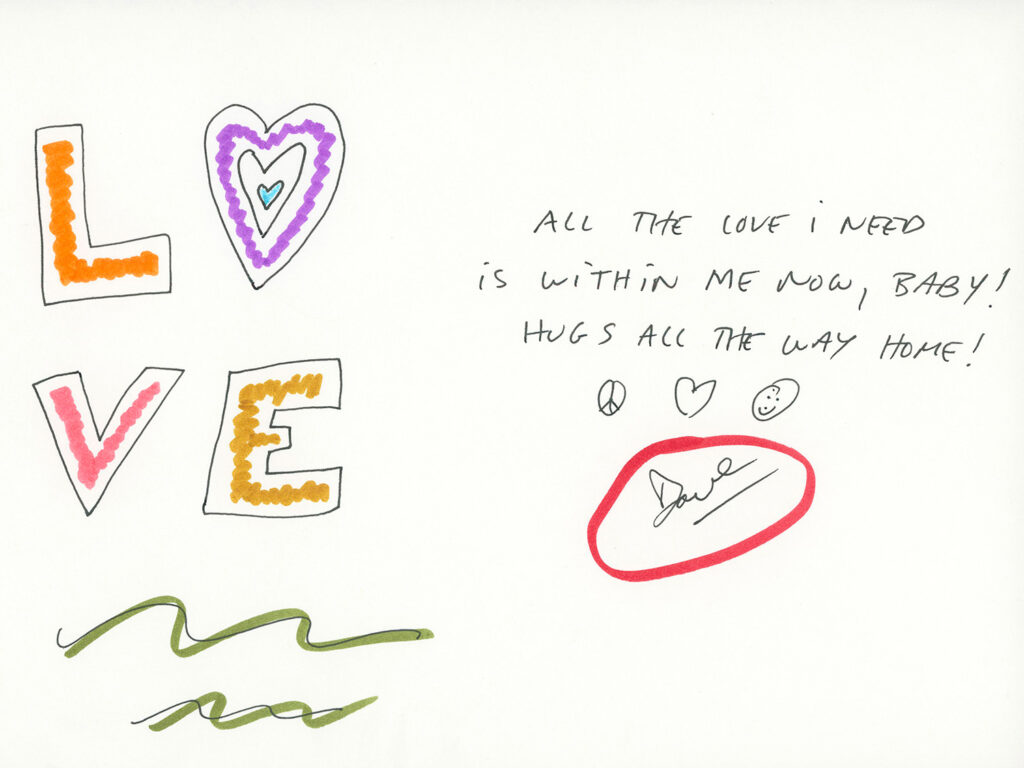 LOVE
ALL THE LOVE i NEED
iS WiTHiN ME NOW, BABY!
HUGS ALL THE WAY HOME!
Dave